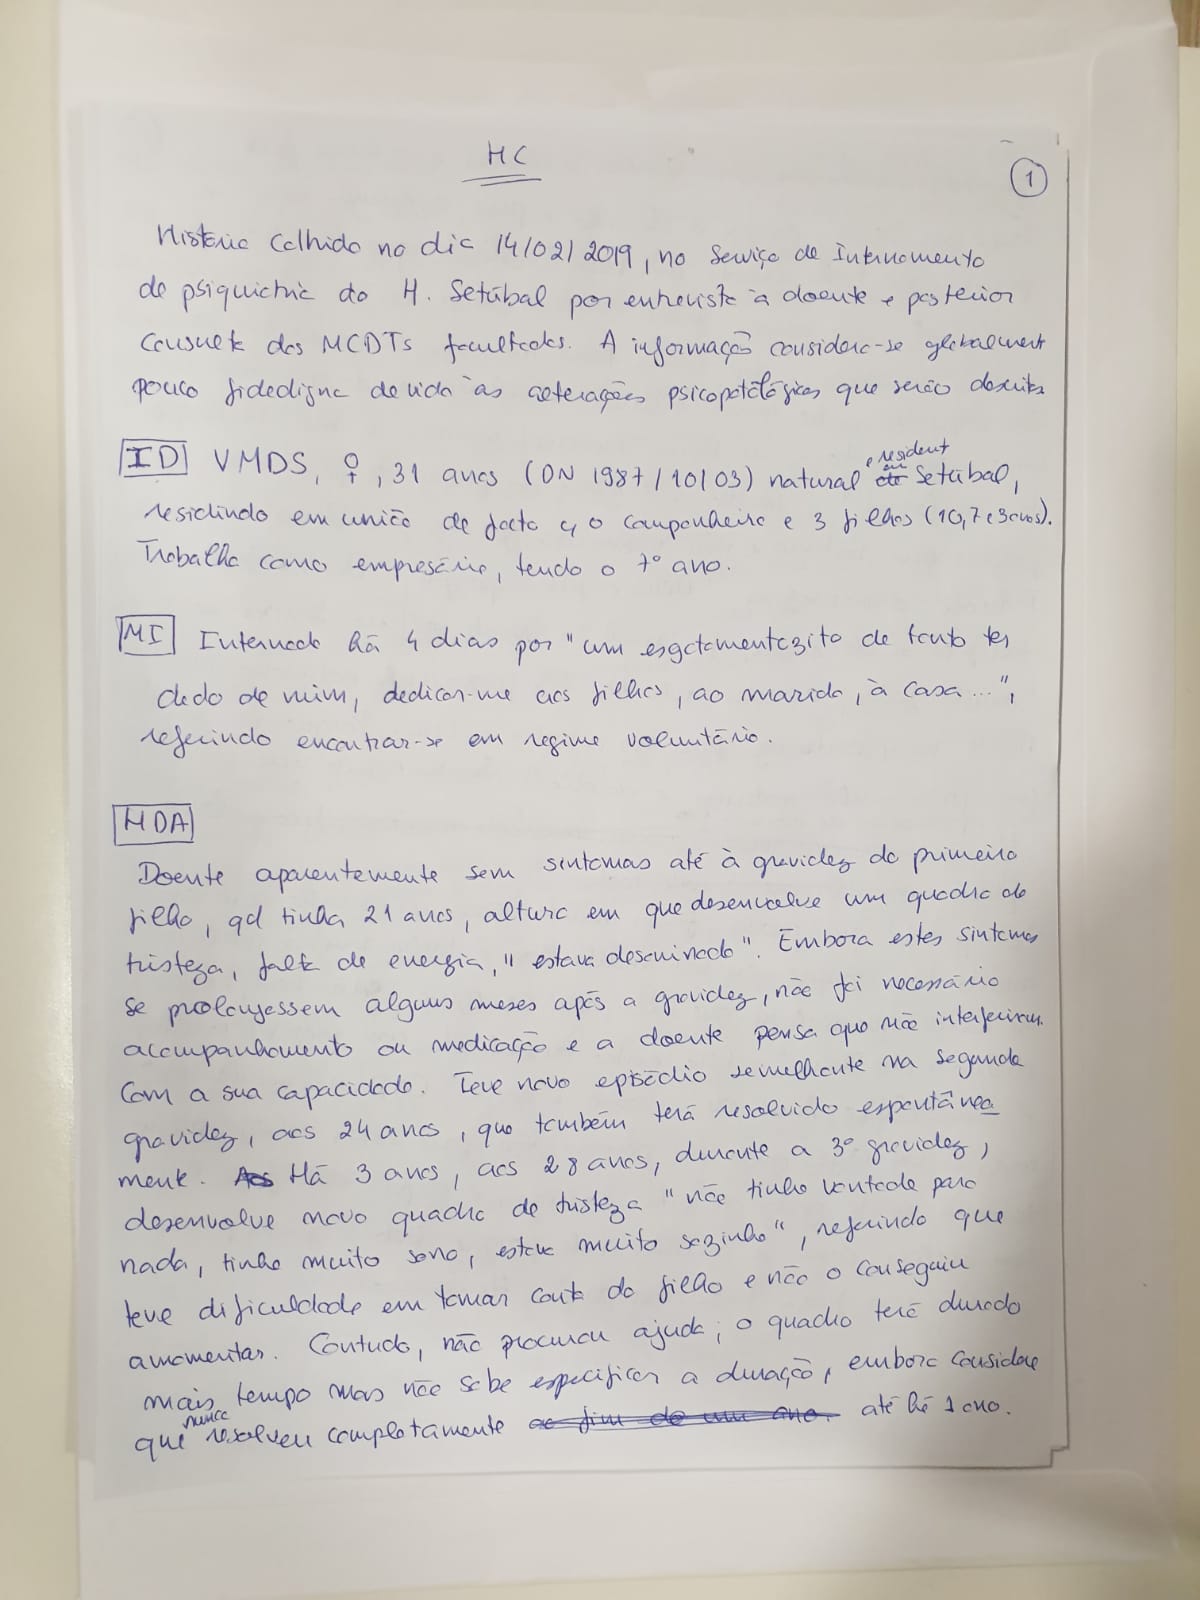 HC
1
História colhida no dia 14/02/2019, no Serviço de Internamento
de psiquiatria do H. Setúbal por entrevista à doente e posterior
consulta dos MCDTs facultados. A informação considera-se globalment
pouco fidedigna devido às alterações psicopatológicas que serão descritas
ID VMDS, ♀, 31 anos (DN 1987/10/03) natural e resident em Setúbal,
residindo em união de facto c/ o companheiro e 3 filhos (10, 7 e 3 anos).
Trabalha como empresária, tendo o 7º ano.
MI Internada há 4 dias por "um esgotamentozito de tanto ter
dado de mim, dedicar-me aos filhos, ao marido, à casa...",
referindo encontrar-se em regime voluntário.
HDA
Doente aparentemente sem sintomas até à gravidez do primeiro
filho, qd tinha 21 anos, altura em que desenvolve um quadro de
tristeza, falta de energia, "estava desanimada". Embora estes sintomas
se prolongassem alguns meses após a gravidez, não foi necessário
acompanhamento ou medicação e a doente pensa que não interferiram
com a sua capacidade. Teve novo episódio semelhante na segunda
gravidez, aos 24 anos, que também terá resolvido espontânea
mente. Aos Há 3 anos, aos 28 anos, durante a 3ª gravidez,
desenvolve novo quadro de tristeza "não tinha vontade para
nada, tinha muito sono, estava muito sozinha", referindo que
teve dificuldade em tomar conta do filho e não o conseguiu
amamentar. Contudo, não procurou ajuda; o quadro terá durado
mais tempo mas não sabe especificar a duração, embora considere
que nunca resolveu completamente ao fim de um ano. até há 1 ano.